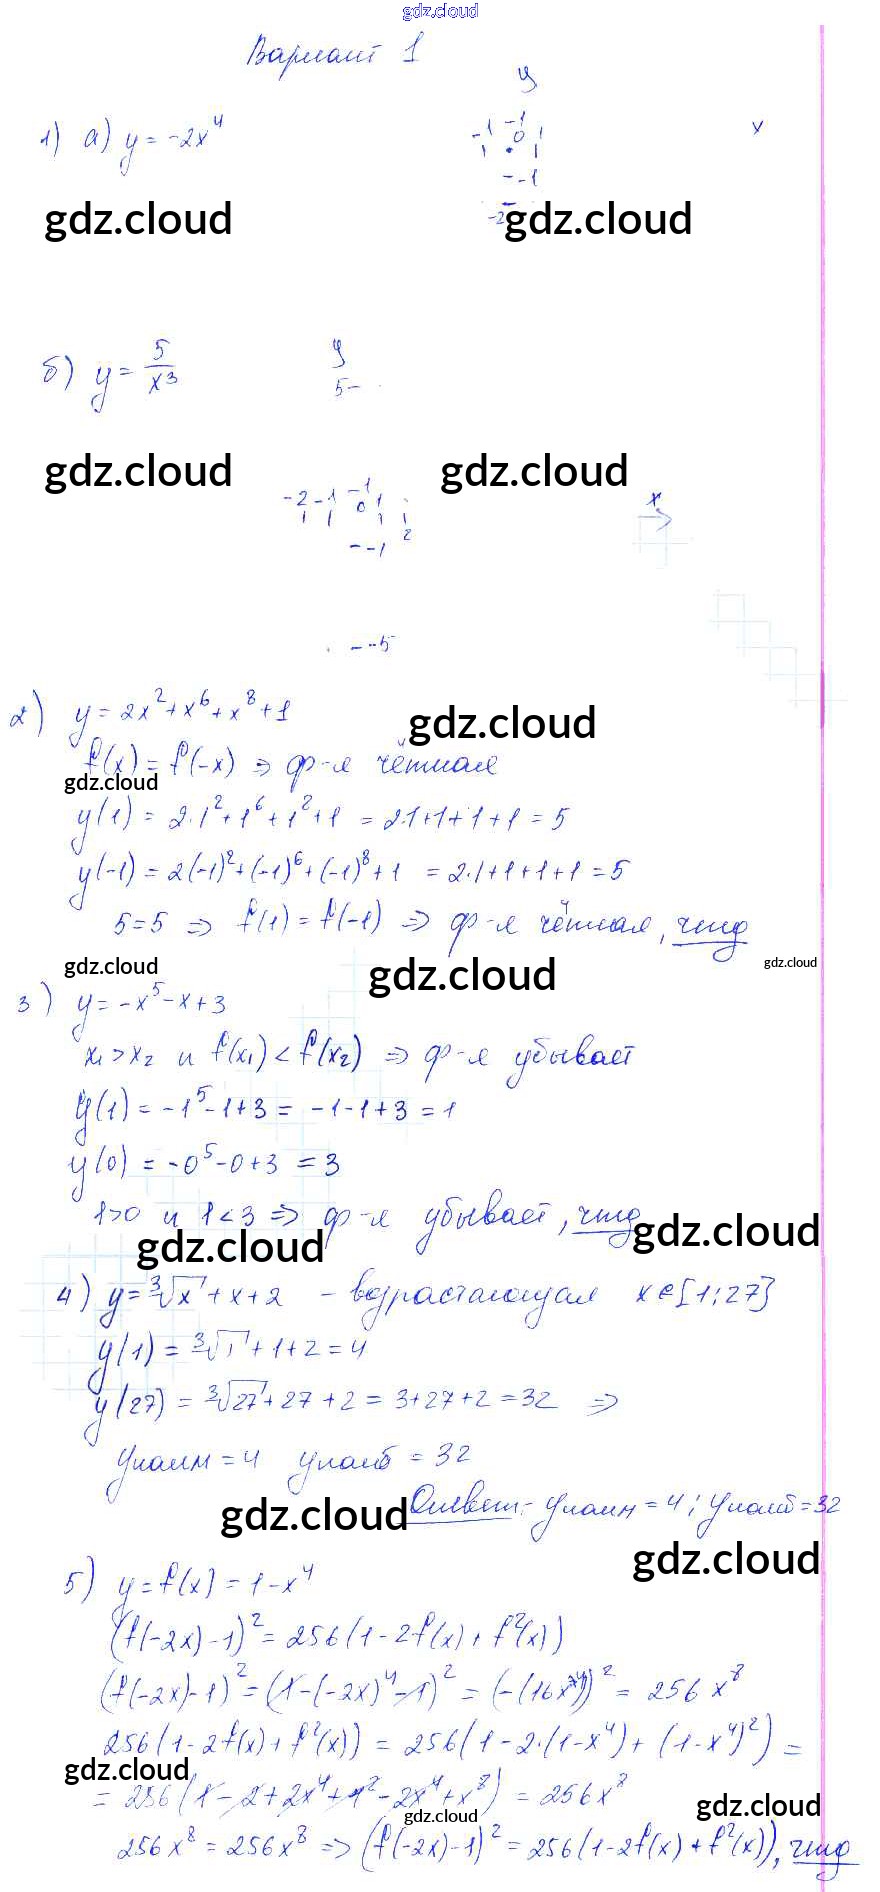 gdz.cloud
Вариант 1
1) а) y = -2x⁴
y
-1 -1 0 1 x
--1
-2
gdz.cloud gdz.cloud
б) y = 5/x³
y
5-
gdz.cloud gdz.cloud
-2 -1 -1 0 1 2 x
--1
--5
2) y = 2x² + x⁶ + x⁸ + 1
gdz.cloud
f(x) = f(-x) ⇒ ф-я чётная
gdz.cloud
y(1) = 2·1² + 1⁶ + 1² + 1 = 2·1+1+1+1 = 5
y(-1) = 2(-1)² + (-1)⁶ + (-1)⁸ + 1 = 2·1+1+1+1 = 5
5=5 ⇒ f(1) = f(-1) ⇒ ф-я чётная, чтд
gdz.cloud gdz.cloud gdz.cloud
3) y = -x⁵ - x + 3
x₁ > x₂ и f(x₁) < f(x₂) ⇒ ф-я убывает
y(1) = -1⁵ - 1 + 3 = -1-1+3 = 1
y(0) = -0⁵ - 0 + 3 = 3
1>0 и 1<3 ⇒ ф-я убывает, чтд
gdz.cloud gdz.cloud
4) y = ³√x + x + 2 - возрастающая x∈[1;27]
y(1) = ³√1 + 1 + 2 = 4
y(27) = ³√27 + 27 + 2 = 3+27+2 = 32 ⇒
yнаим = 4 yнаиб = 32
Ответ: yнаим = 4; yнаиб = 32
gdz.cloud
gdz.cloud
5) y = f(x) = 1 - x⁴
(f(-2x) - 1)² = 256(1 - 2f(x) + f²(x))
(f(-2x) - 1)² = (1 - (-2x)⁴ - 1)² = (-(16x⁴))² = 256x⁸
256(1 - 2f(x) + f²(x)) = 256(1 - 2·(1-x⁴) + (1-x⁴)²) =
gdz.cloud
= 256(1 - 2 + 2x⁴ + 1² - 2x⁴ + x⁸) = 256x⁸
gdz.cloud gdz.cloud
256x⁸ = 256x⁸ ⇒ (f(-2x) - 1)² = 256(1 - 2f(x) + f²(x)), чтд